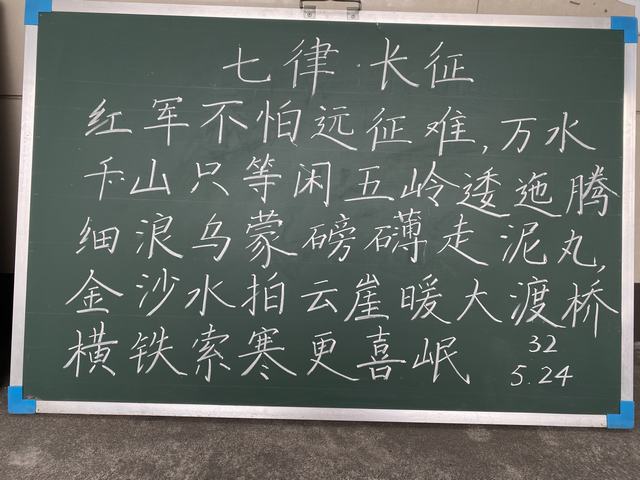 七律·长征
红军不怕远征难,万水
千山只等闲五岭逶迤腾
细浪乌蒙磅礴走泥丸,
金沙水拍云崖暖大渡桥
横铁索寒更喜岷
32
5.24